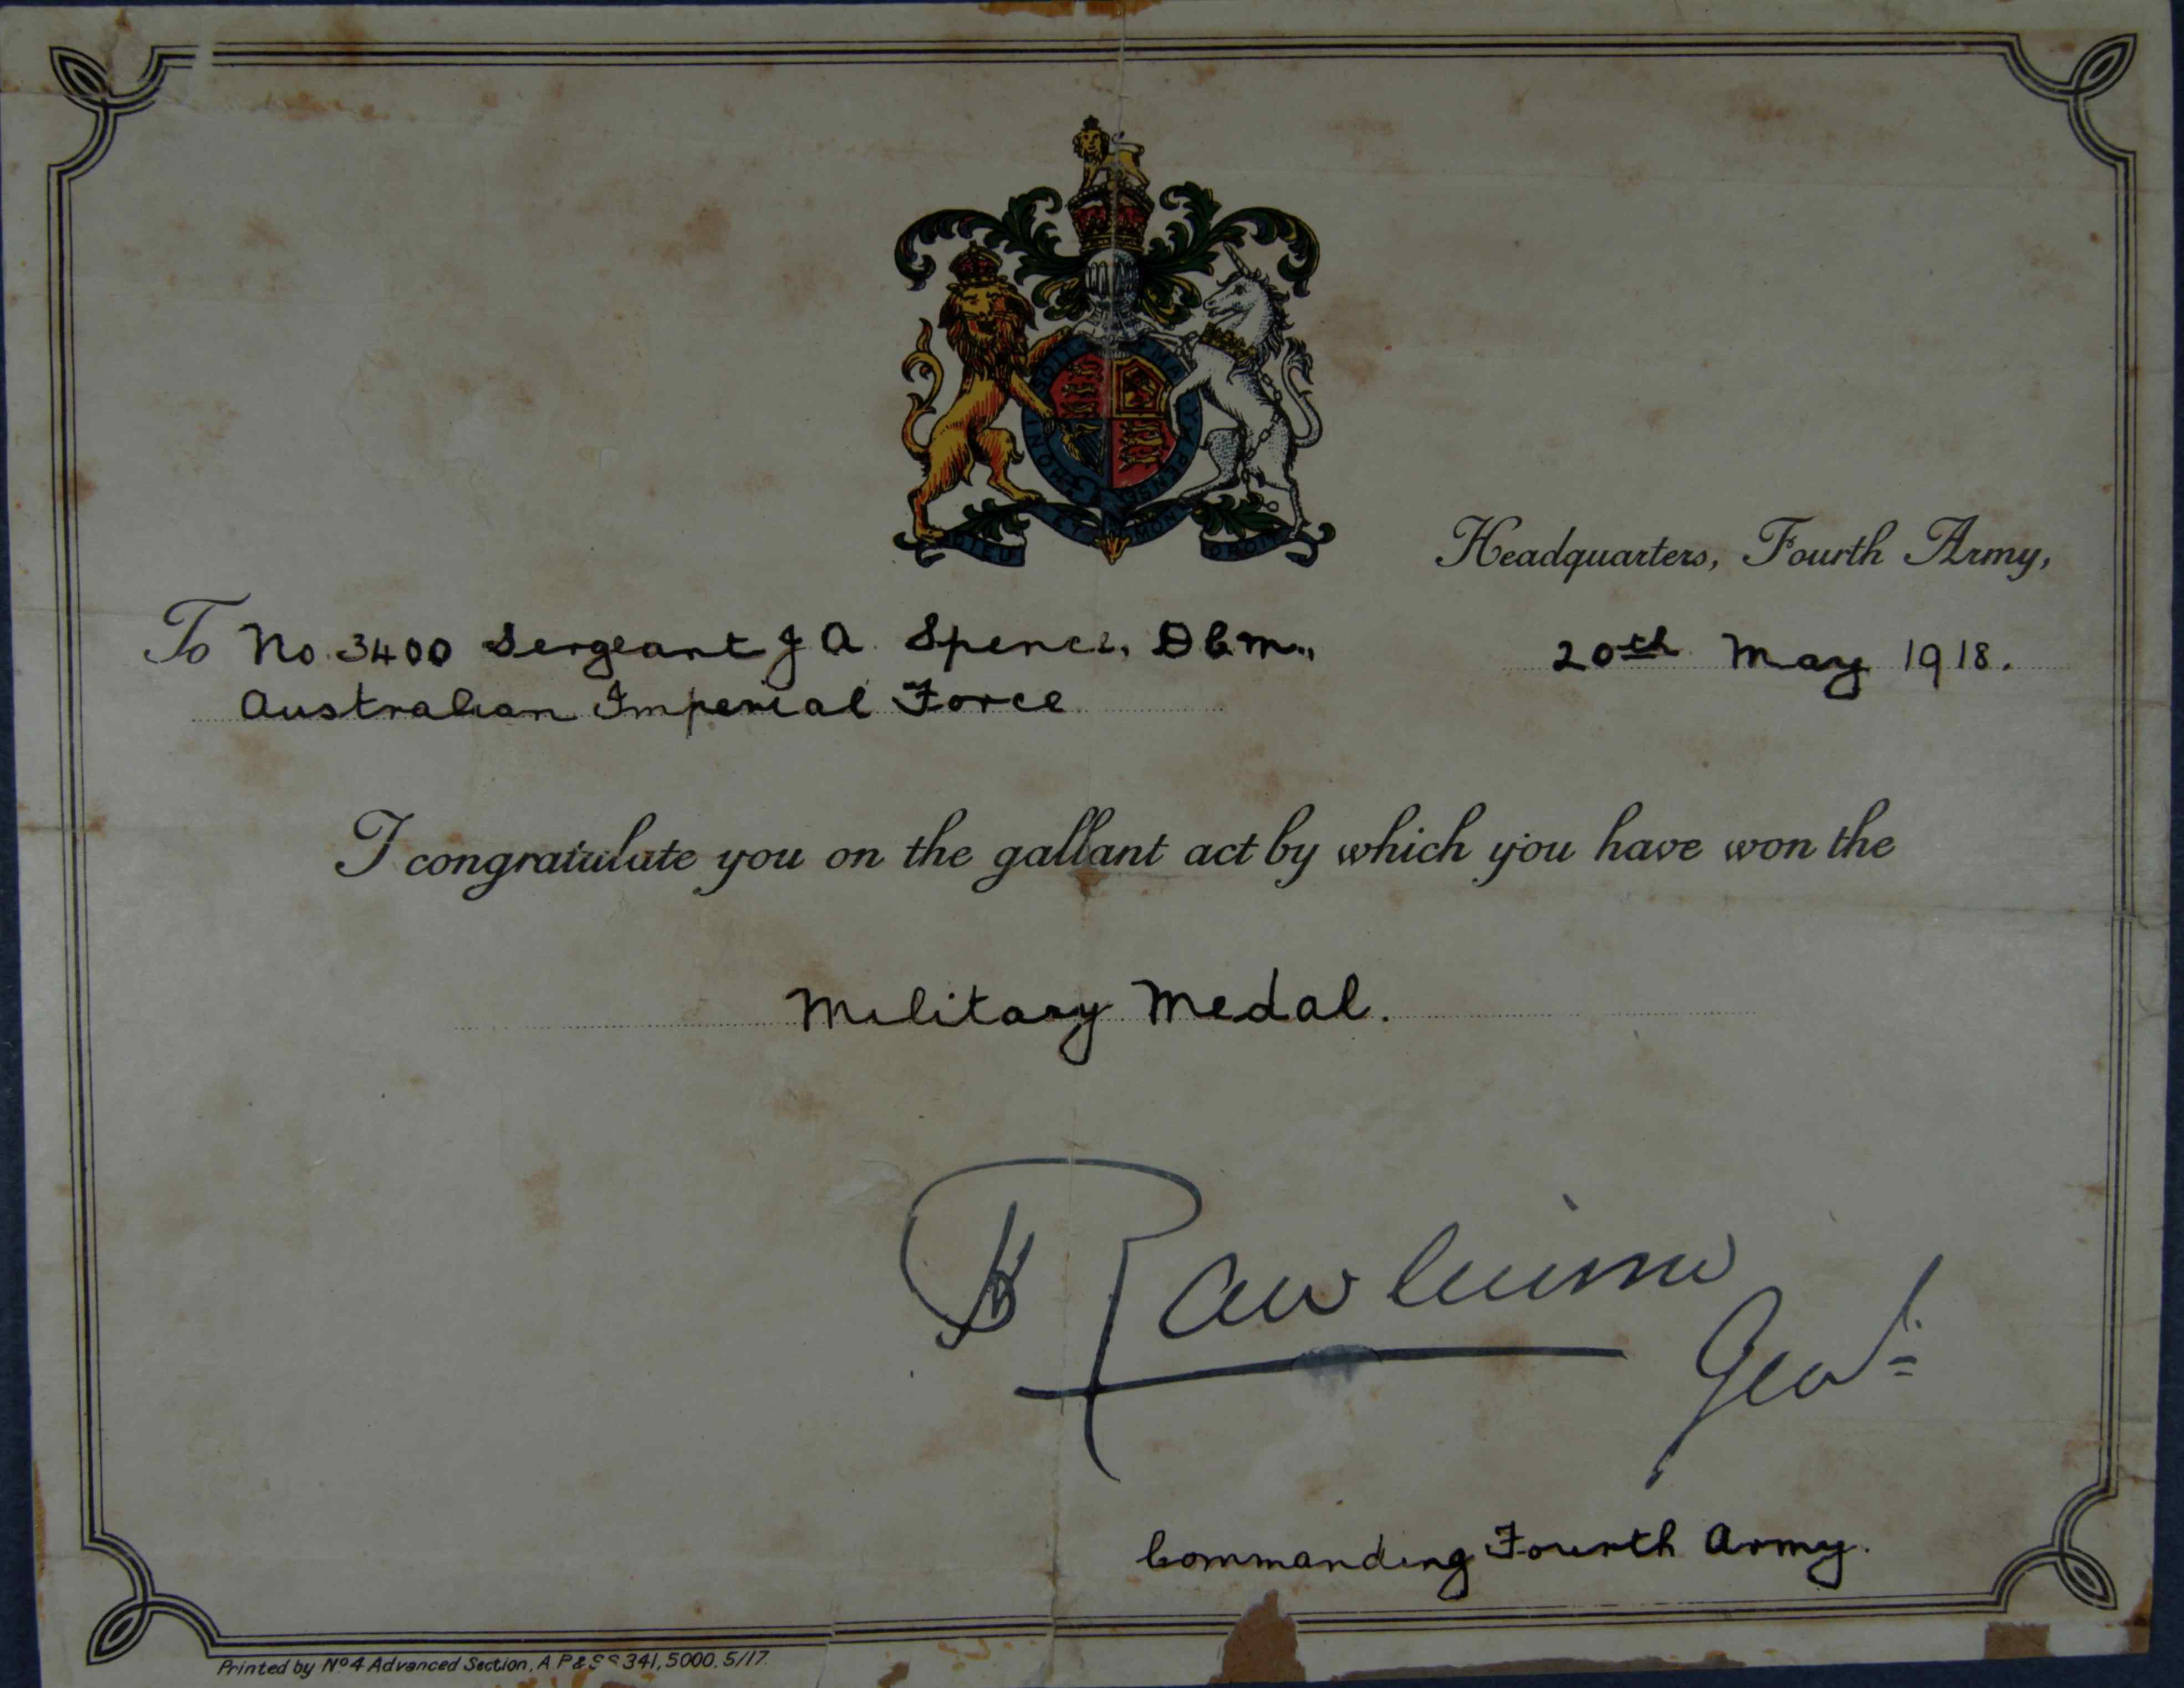 HONI SOIT QUI MAL Y PENSE
DIEU ET MON DROIT
Headquarters, Fourth Army,
To No. 3400 Sergeant J A. Spence, D.C.M.,
20th May 1918.
Australian Imperial Force
I congratulate you on the gallant act by which you have won the
Military Medal.
Rawlinson
Genl.
Commanding Fourth Army.
Printed by No 4 Advanced Section, A.P. & S.S 341, 5000. 5/17.